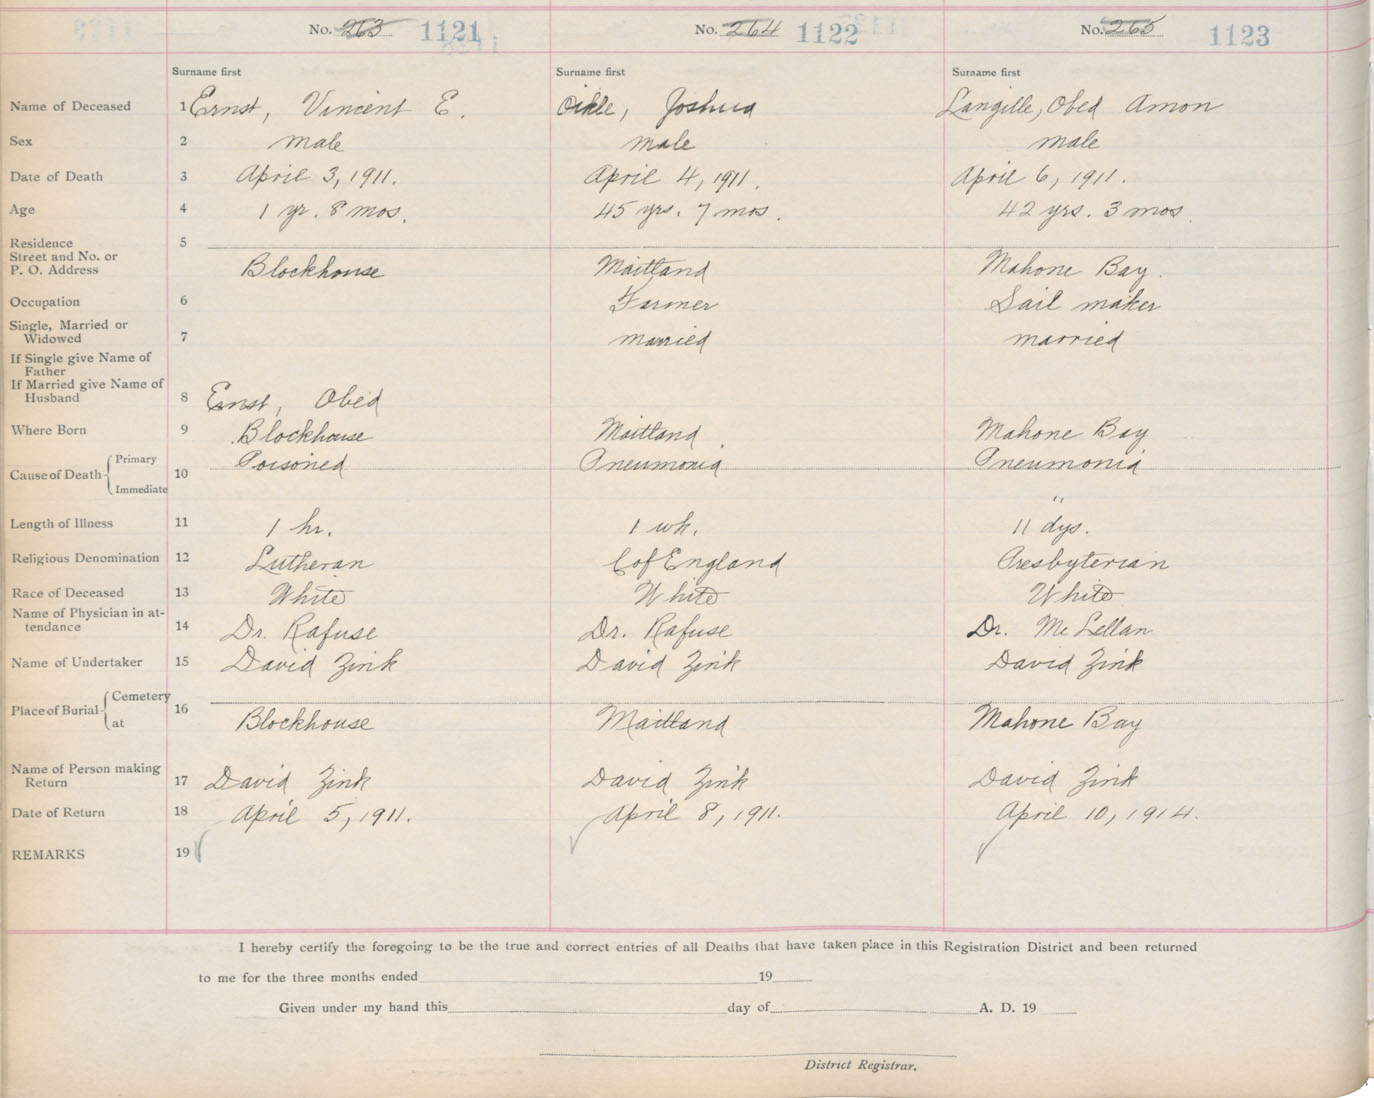 No. 263 1121 No. 264 1122 No. 265 1123
Surname first Surname first Surname first
Name of Deceased 1 Ernst, Vincent E. Oikle, Joshua Langille, Obed Amon
Sex 2 male male male
Date of Death 3 April 3, 1911. April 4, 1911. April 6, 1911.
Age 4 1 yr. 8 mos. 45 yrs. 7 mos. 42 yrs. 3 mos
Residence 5
Street and No. or
P. O. Address Blockhouse Maitland Mahone Bay.
Occupation 6 Farmer Sail maker
Single, Married or
Widowed 7 married married
If Single give Name of
Father
If Married give Name of
Husband 8 Ernst, Obed
Where Born 9 Blockhouse Maitland. Mahone Bay
Primary Poisoned Pneumonia Pneumonia
Cause of Death 10
Immediate "
Length of Illness 11 1 hr. 1 wk. 11 dys.
Religious Denomination 12 Lutheran C of England Presbyterian
Race of Deceased 13 White White White
Name of Physician in at-
tendance 14 Dr. Rafuse Dr. Rafuse Dr. McLellan
Name of Undertaker 15 David Zink David Zink David Zink
Cemetery
Place of Burial 16
at Blockhouse Maitland Mahone Bay
Name of Person making
Return 17 David Zink David Zink David Zink
Date of Return 18 April 5, 1911. April 8, 1911. April 10, 1914.
REMARKS 19
I hereby certify the foregoing to be the true and correct entries of all Deaths that have taken place in this Registration District and been returned
to me for the three months ended 19
Given under my hand this day of A. D. 19
District Registrar.